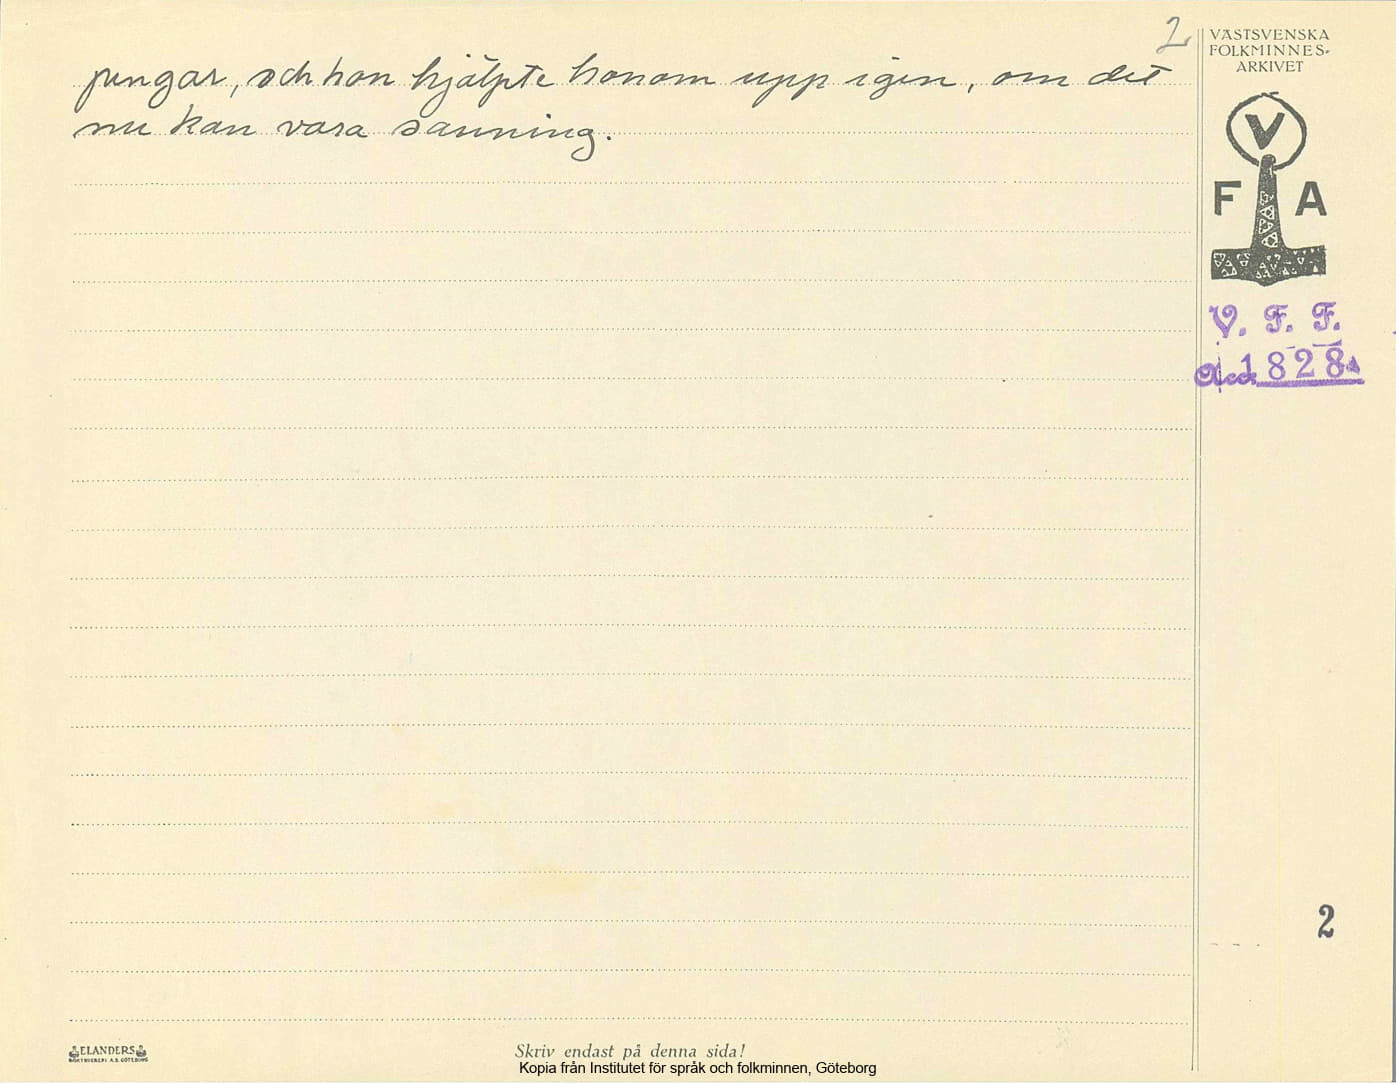 2
VÄSTSVENSKA
FOLKMINNES-
ARKIVET
pengar, och han hjälpte honom upp igen, om det
nu kan vara sanning.
V
F A
V. F. F.
Acc. 1828
2
ELANDERS
BOKTRYCKERI A.B. GÖTEBORG
Skriv endast på denna sida!
Kopia från Institutet för språk och folkminnen, Göteborg